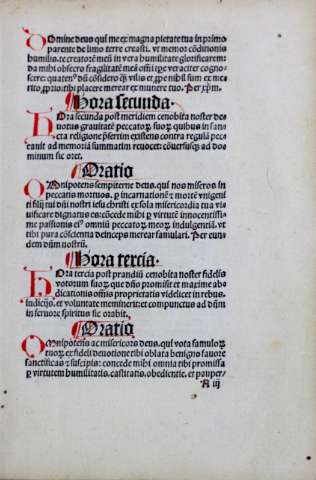 Domine deus qui me ex magna pietate tua in primo
parente de limo terre creasti. vt memor cōditionis
humilis. te creatorē meū in vera humilitate glorificarem:
da mihi obsecro fragilitatē meā
scere: quaten⁹ dū cōsidero ꝙ vilis et ꝓpe nihil sum ex me
rito ꝓprio: tibi placere merear ex munere tuo. Per xp̄m.
Hora secunda.
Hora secunda post meridiem cenobita noster de⸗
uotus grauitatē peccatoꝝ suoꝝ quibus in san⸗
cta religione p̄sertim existens contra regulā pec⸗
cauit ad memoriā summatim reuocet: cōuersusꝗꝫ ad do⸗
minum sic oret.
Oratio
Omnipotens sempiterne deus. qui nos miseros in
peccatis mortuos. ꝑ incarnationē et mortē vnigeni
ti filij tui dn̄i nostri iesu christi ex sola misericordia tua vi⸗
uificare dignatus es: cōcede mihi ꝑ virtutē innocentissi⸗
me passionis eiꝰ omniū peccatoꝝ meoꝝ indulgentiā. vt
tibi pura cōscientia deinceps merear famulari. Per eun⸗
dem dn̄m nostrū.
Hora tercia.
Hora tercia post prandiū cenobita noster fidelis
votorum suoꝝ. que dn̄o promisit et maxime ab⸗
dicationis omnis proprietatis videlicet in rebus.
iudicijs. et voluntate meminerit: et compunctus ad dn̄m
in feruore spiritus sic orabit.
Oratio
Omnipotēs ac misericors deus. qui vota famulo⸗
rū tuoꝝ. ex fideli deuotione tibi oblata benigno fauore
sanctificas et suscipis: concede mihi omnia tibi promissa
ꝑ virtutem humilitatis. castitatis. obedientie. et pauper⸗
A iij